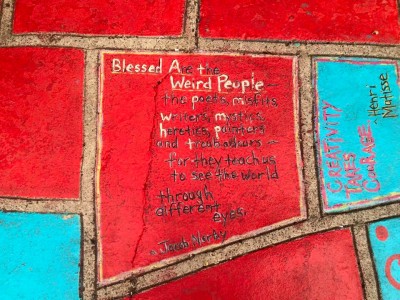 Blessed Are the
Weird People –
the poets, misfits,
writers, mystics,
heretics, painters
and troubadours –
for they teach us
to see the world
through
different
eyes.
- Jacob Nordby
CREATIVITY
TAKES
COURAGE
- Henri
Matisse